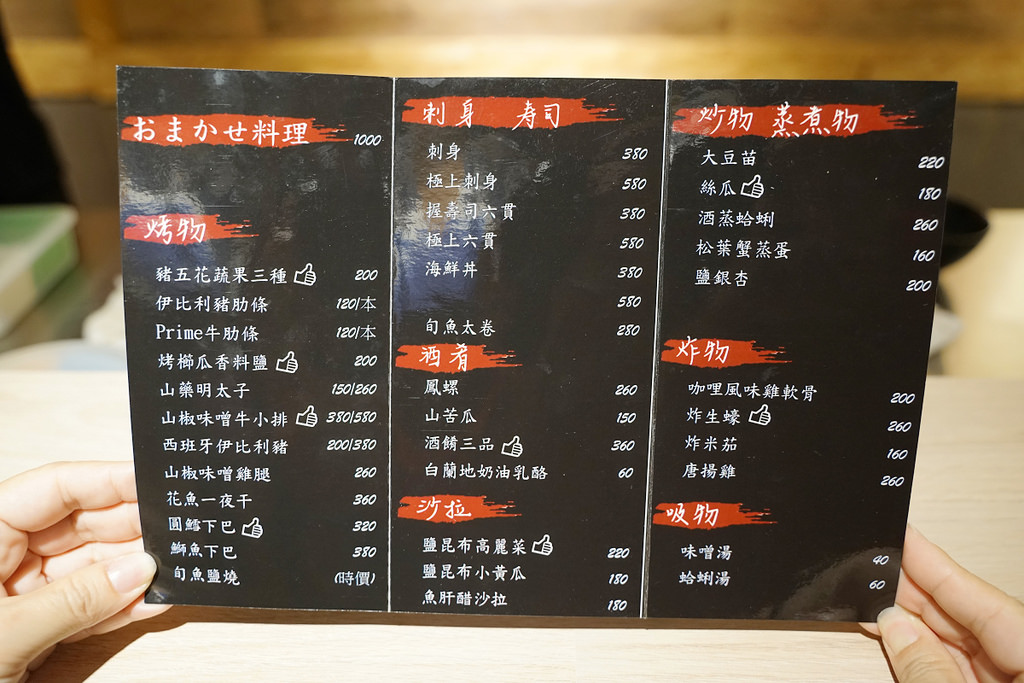 おまかせ料理 1000
烤物
豬五花蔬果三種 200
伊比利豬肋條 120/本
Prime牛肋條 120/本
烤櫛瓜香料鹽 200
山藥明太子 150/260
山椒味噌牛小排 380/580
西班牙伊比利豬 200/380
山椒味噌雞腿 260
花魚一夜干 360
圓鱈下巴 320
鰤魚下巴 380
旬魚鹽燒 (時價)
刺身 寿司
刺身 380
極上刺身 580
握壽司六貫 380
極上六貫 580
海鮮丼 380
580
旬魚太卷 280
酒肴
鳳螺 260
山苦瓜 150
酒餚三品 360
白蘭地奶油乳酪 60
沙拉
鹽昆布高麗菜 220
鹽昆布小黃瓜 180
魚肝醋沙拉 180
炒物 蒸煮物
大豆苗 220
絲瓜 180
酒蒸蛤蜊 260
松葉蟹蒸蛋 160
鹽銀杏 200
炸物
咖哩風味雞軟骨 200
炸生蠔 260
炸米茄 160
唐揚雞 260
吸物
味噌湯 40
蛤蜊湯 60